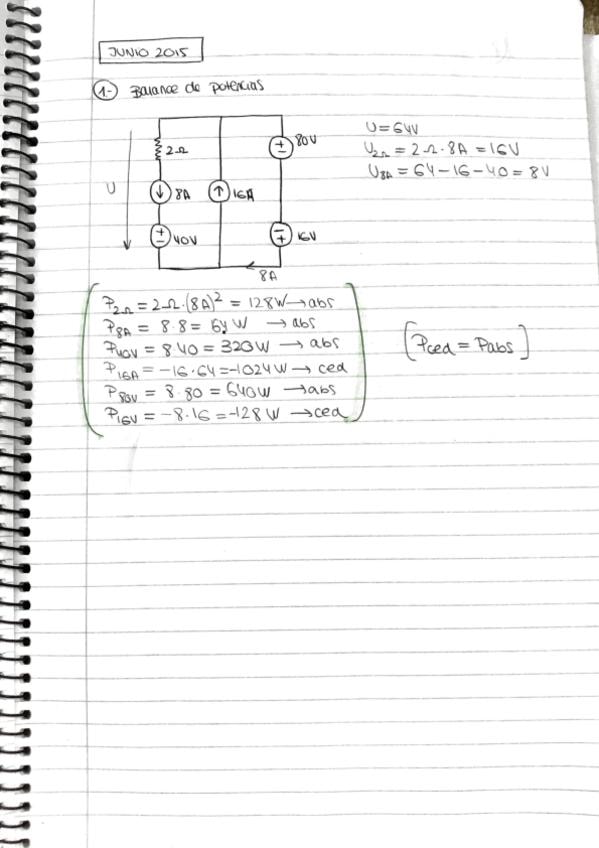 JUNIO 2015
1- Balance de potencias
2Ω
80V
U
8A
16A
40V
16V
8A
U = 64V
U2Ω = 2Ω · 8A = 16V
U8A = 64 - 16 - 40 = 8V
P2Ω = 2Ω · (8A)² = 128W → abs
P8A = 8·8 = 64 W → abs
P40V = 8·40 = 320W → abs
P16A = -16·64 = -1024W → ced
P80V = 8·80 = 640W → abs
P16V = -8·16 = -128W → ced
[Pced = Pabs]